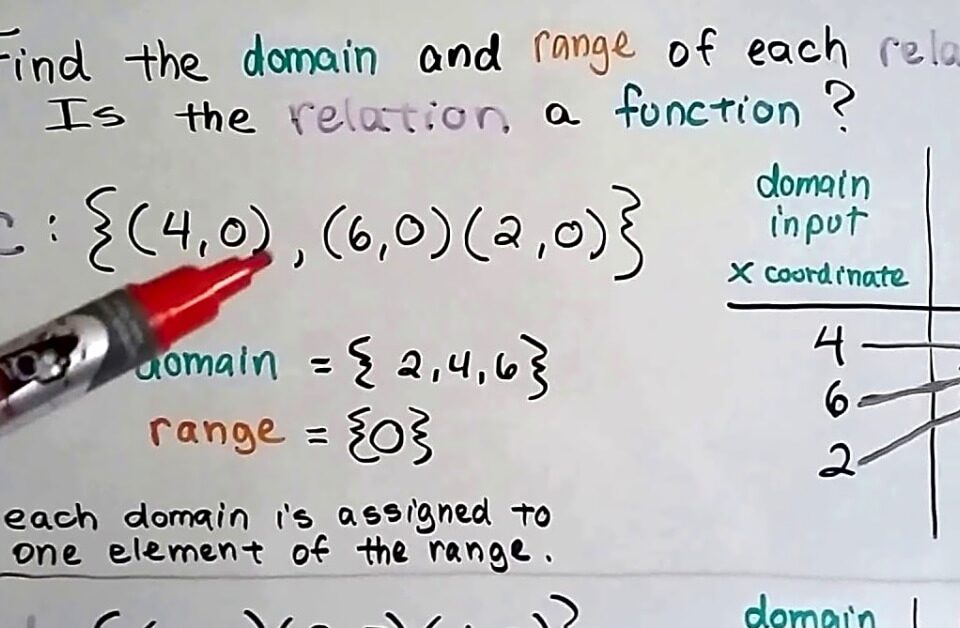 Find the domain and range of each rela
Is the relation a function?
: {(4,0), (6,0)(2,0)}
domain
input
x coordinate
4
6
2
domain = {2,4,6}
range = {0}
each domain is assigned to
one element of the range.
domain